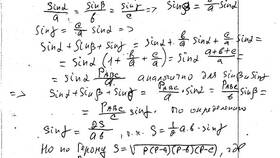 sinα/a = sinβ/b = sinγ/c => sinβ = b/a sinα
sinγ = c/a sinα =>
sinα + sinβ + sinγ = sinα + b/a sinα + c/a sinα =
= sinα (1 + b/a + c/a) = sinα (a+b+c)/a =
= sinα P_ABC/a аналогично для sinβ и sinγ
=> sinα + sinβ + sinγ = P_ABC/a · sinα = P_ABC/b sinβ =
= P_ABC/c sinγ. По определению
sinγ = 2S/ab, т.к. S = 1/2 a b · sinγ
Но по Герону S = √p(p-a)(p-b)(p-c), где